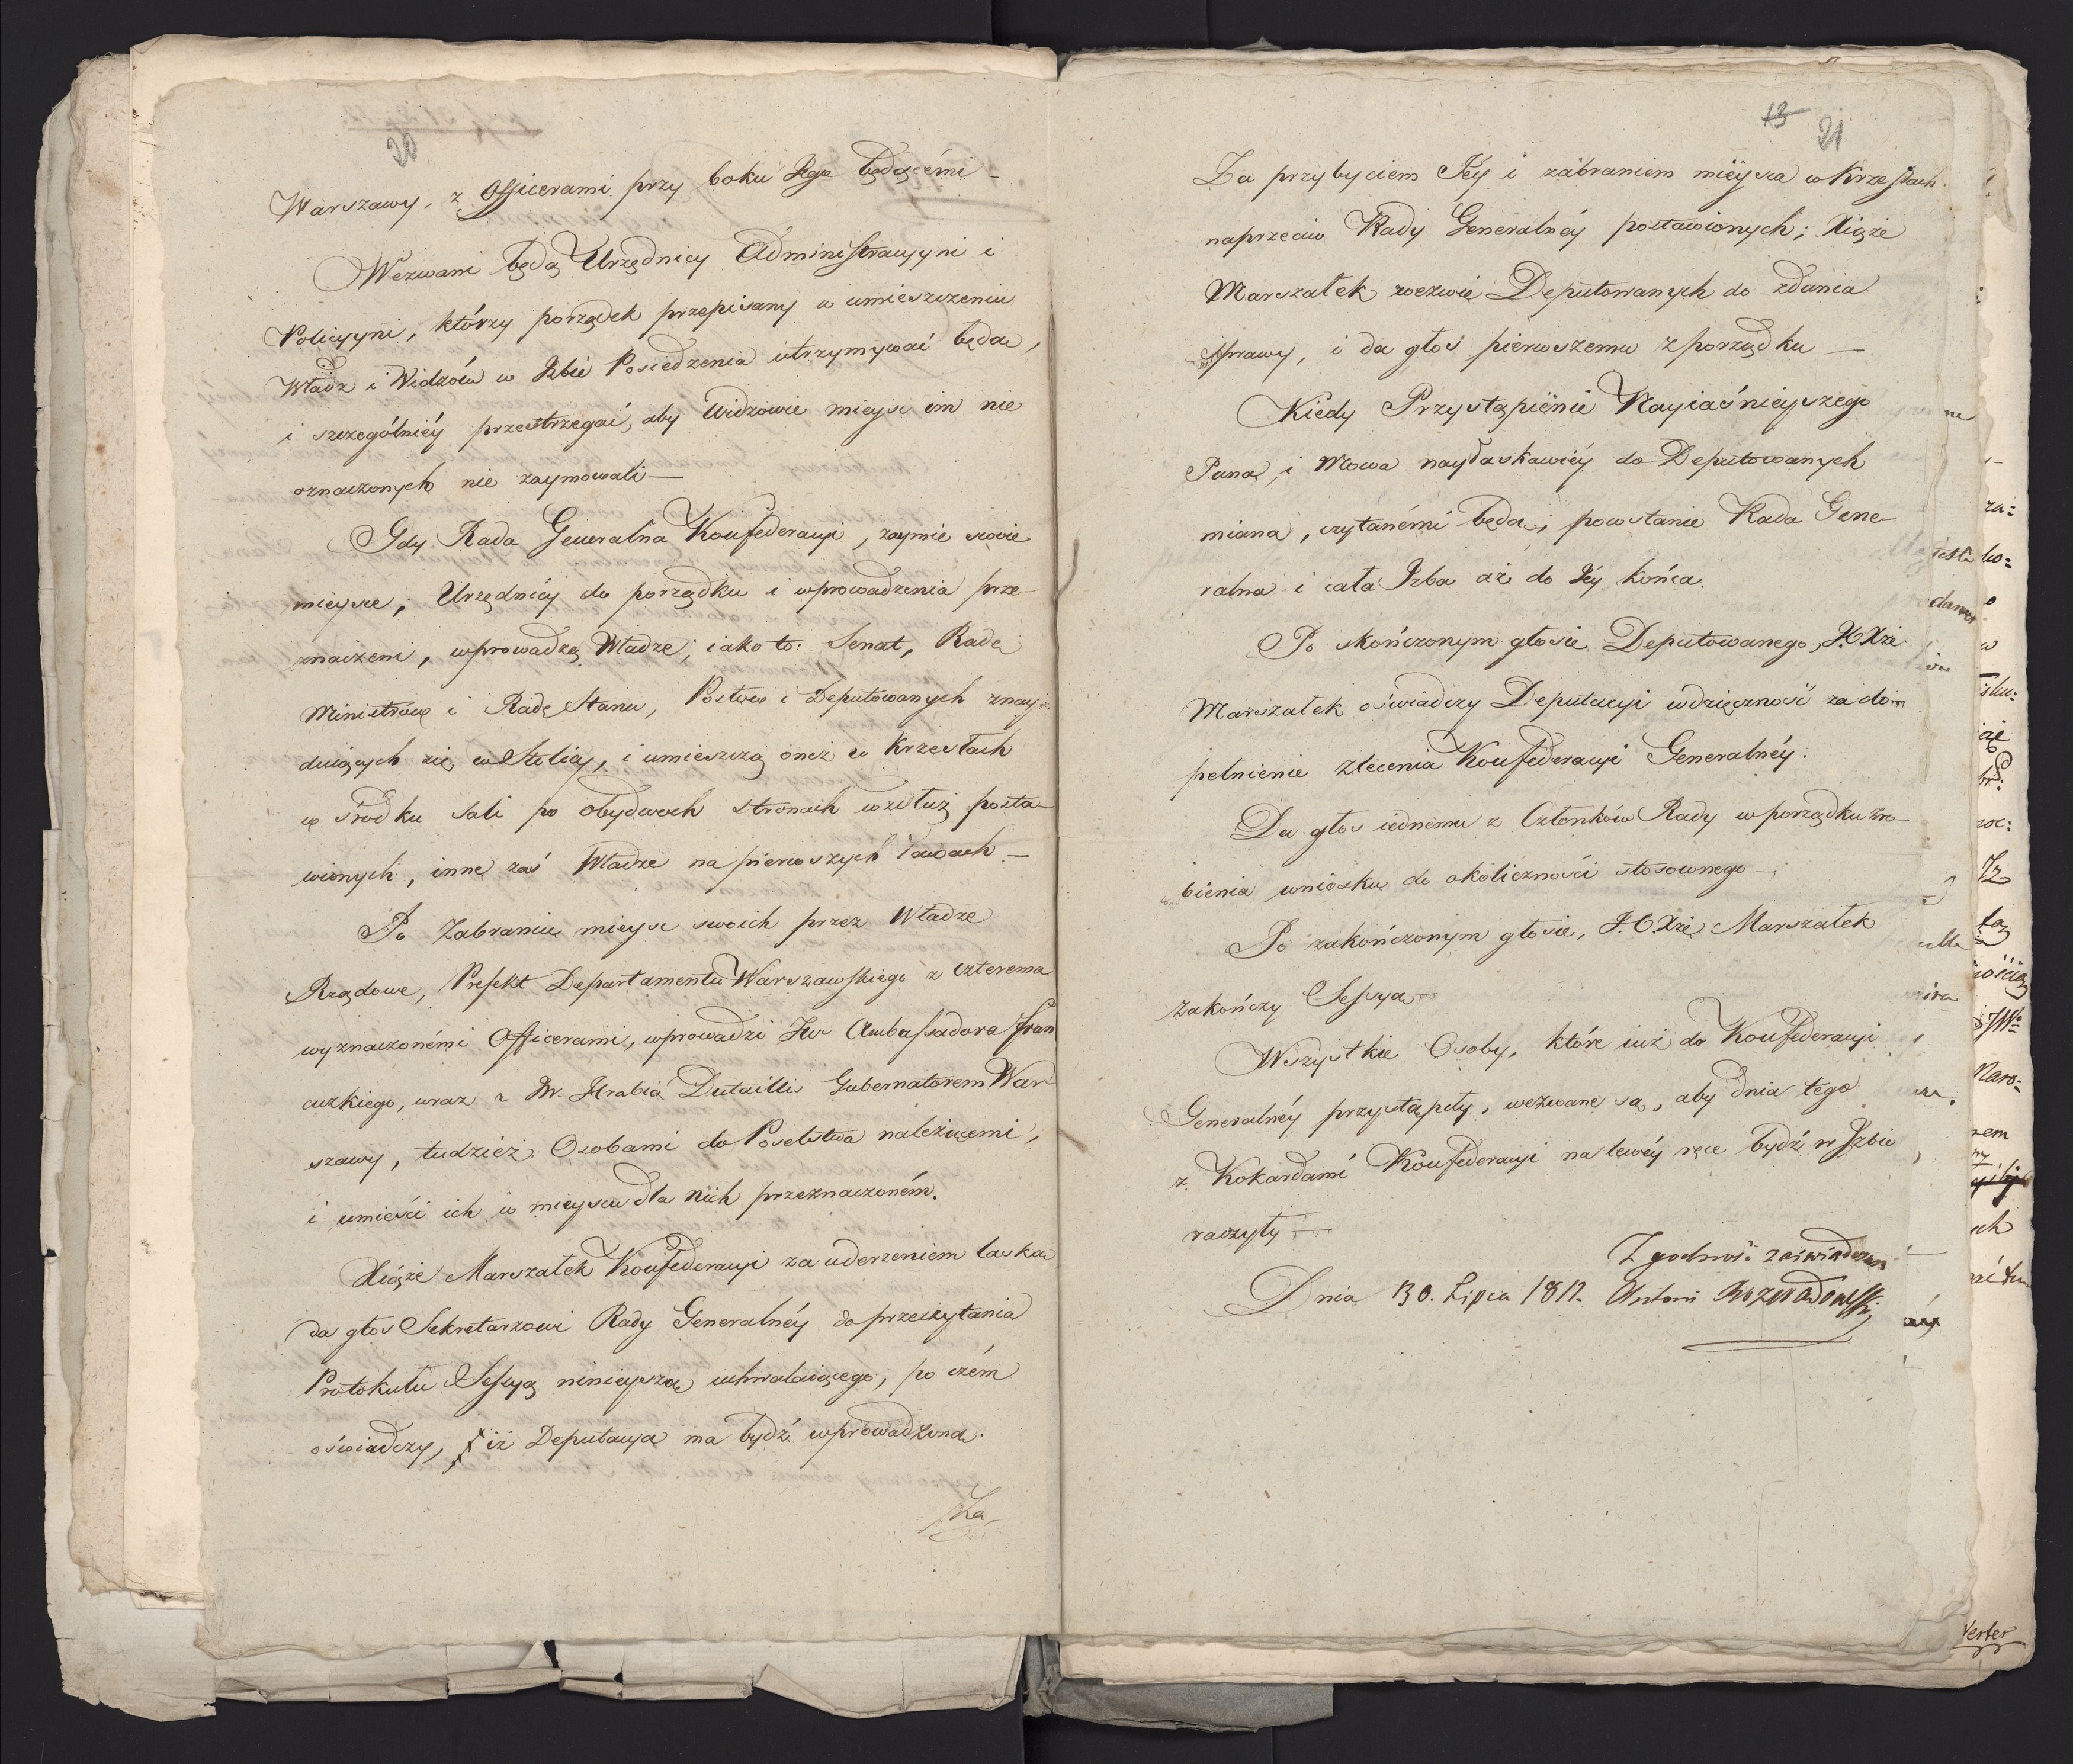 20
Warszawy, z Officerami przy boku Jego będącémi —
Wezwani będą Urzędnicy Administracyyni i
Policyyni, którzy porządek przepisany w umieszczeniu
Władz i Widzów w Izbie Posiedzenia utrzymywać będą,
i szczególniéy przestrzegać, aby Widzowie mieysc im nie
oznaczonych nie zaymowali —
Gdy Rada Generalna Konfederacyi, zaymie swoie
mieysce; Urzędnicy do porządku i wprowadzenia prze-
znaczeni, wprowadzą Władze; iako to: Senat, Radę
Ministrów i Radę Stanu, Posłów i Deputowanych znay-
duiących się w Stolicy, i umieszczą oneż w Krzesłach
w środku Sali po obydwoch stronach wzdłuż posta-
wionych, inne zaś Władze na pierwszych ławach —
Po Zabraniu mieysc swoich przez Władze
Rządowe, Prefekt Departamentu Warszawskiego z czterema
wyznaczonémi Officerami, wprowadzi JW Ambassadora Fran
cuzkiego, wraz z JW. Hrabią Dutaillis Gubernatorem War-
szawy, tudzież Osobami do Poselstwa należącemi,
i umieści ich w mieyscu dla nich przeznaczoném.
Xiąże Marszałek Konfederacyi za uderzeniem laską
da głos Sekretarzowi Rady Generalnéy do przeczytania
Protokułu Sessyą ninieyszą uchwalaiącego, po czém
oświadczy, iż Deputacya ma bydź wprowadzona.
Za,
13 21
Za przybyciem Jéy i zabraniem mieysca w Krzesłach
naprzeciw Rady Generalnéy postawionych; Xiąże
Marszałek wezwie Deputowanych do zdania
sprawy, i da głos pierwszemu z porządku —
Kiedy Przystąpienie Nayiaśnieyszego
Pana, i Mowa nayłaskawiéy do Deputowanych
miana, czytanémi będą; powstanie Rada Gene-
ralna i cała Izba aż do Jéy końca.
Po skończonym głosie Deputowanego, J.O. Xże
Marszałek oświadczy Deputacyi wdzięczność za do-
pełnienie zlecenia Konfederacyi Generalnéy.
Da głos iednemu z Członków Rady w porządku zro-
bienia wniosku do okoliczności stosownego —
Po zakończonym głosie, J.O. Xże Marszałek
zakończy Sessyą —
Wszystkie Osoby, które iuż do Konfederacyi
Generalnéy przystąpiły, wezwane są, aby dnia tego
z Kokardami Konfederacyi na lewéy ręce bydź w Izbie
raczyły —
Zgodność zaświadczam
Dnia 30. Lipca 1812. Antoni Rozwadowski